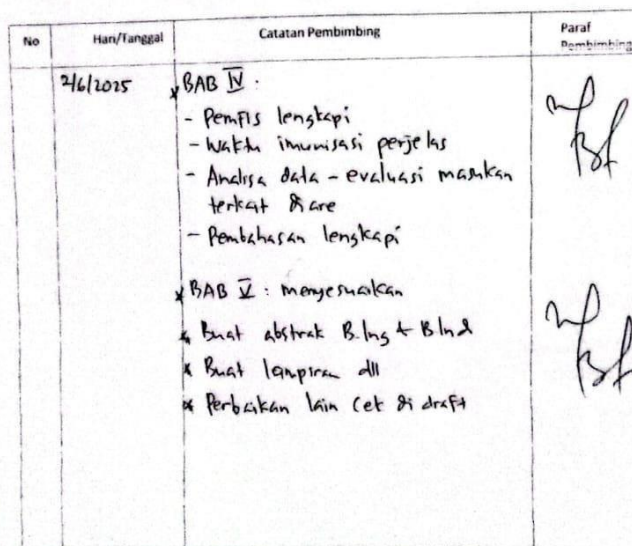 No
Hari/Tanggal
Catatan Pembimbing
Paraf
Pembimbing
2/6/2025
* BAB IV :
- Pemfis lengkapi
- Waktu imunisasi perjelas
- Analisa data - evaluasi masukan
terkait diare
- Pembahasan lengkapi
* BAB V : menyesuaikan
* Buat abstrak B.Ing + B.Ind
* Buat lampiran dll
* Perbaikan lain cek di draft